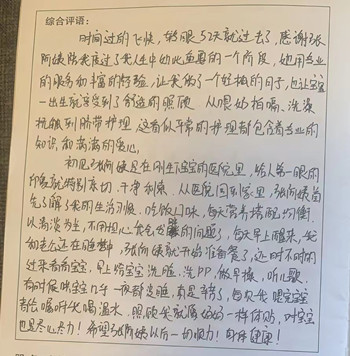 综合评语:
时间过的飞快,转眼52天就过去了,感谢张
阿姨陪我度过了人生中如此重要的一个阶段,她用专业
的服务和丰富的经验,让我做了个轻松的月子,也让宝宝
一出生就享受到了舒适的照顾。从喂奶拍嗝、洗澡
抚触到脐带护理,这看似平常的护理都包含着专业的
知识和满满的爱心。
初见张阿姨是在刚生下宝宝的医院里,给人第一眼的
印象就特别亲切、干净利索。从医院回到家里,张阿姨首
先了解了我的生活习惯、吃饭口味,每天营养搭配均衡
以清淡为主,不用担心食色发的问题了,每天早上醒来,我
和老公还在睡梦中,张阿姨就开始准备餐了,还时不时的
过来看看宝宝,早上给宝宝洗脸、洗PP、做早操、听儿歌,
有时候咪宝几乎一夜都没睡,真是辛苦了,每次我喂宝宝
都会嘱咐我喝温水,照顾我就像妈妈一样体贴,对宝宝
也是尽心尽力!希望张阿姨以后一切顺力!身体健康!